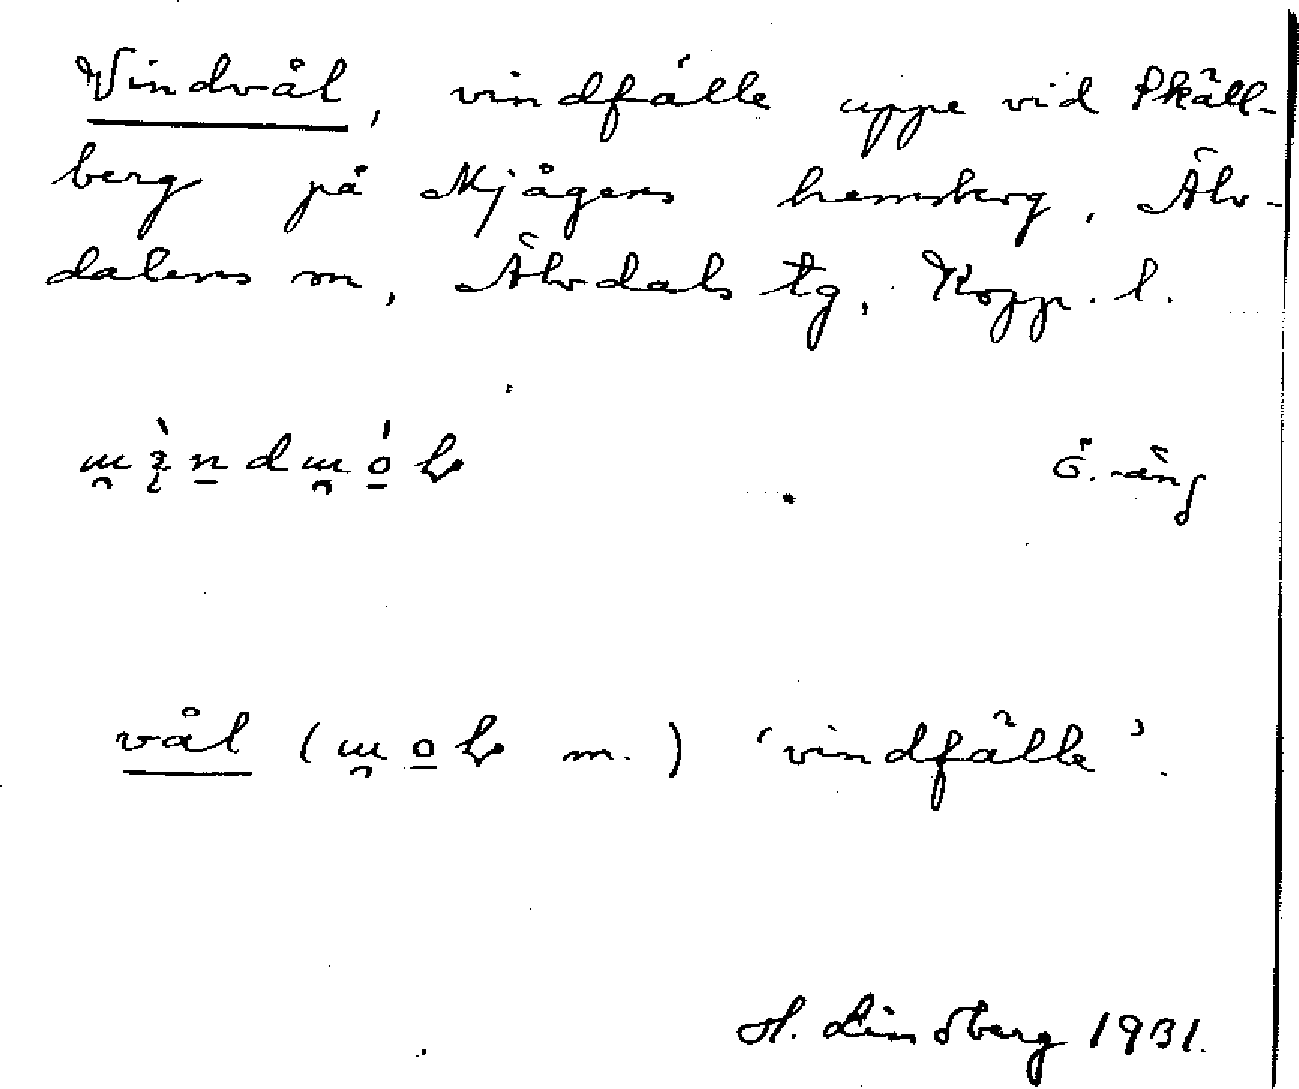 Vindvål, vindfälle uppe vid Skäll-
berg på Mjågens hemskog, Älv-
dalens sn, Älvdals tg, Kopp. l.
Ö. -äng
vål ( m.) 'vindfälle'.
H. Lindberg 1931.